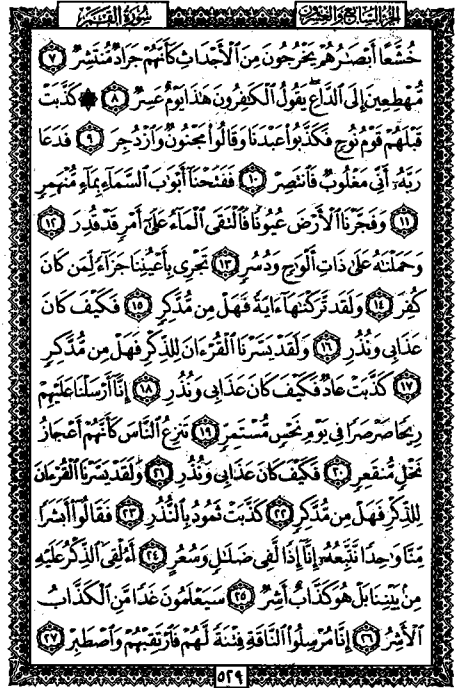 الجزء السابع والعشرون سورة القمر
خُشَّعًا أَبْصَٰرُهُمْ يَخْرُجُونَ مِنَ ٱلْأَجْدَاثِ كَأَنَّهُمْ جَرَادٌ مُّنتَشِرٌ ٧
مُّهْطِعِينَ إِلَى ٱلدَّاعِ يَقُولُ ٱلْكَٰفِرُونَ هَٰذَا يَوْمٌ عَسِرٌ ٨ ۞ كَذَّبَتْ
قَبْلَهُمْ قَوْمُ نُوحٍ فَكَذَّبُوا۟ عَبْدَنَا وَقَالُوا۟ مَجْنُونٌ وَٱزْدُجِرَ ٩ فَدَعَا
رَبَّهُۥٓ أَنِّى مَغْلُوبٌ فَٱنتَصِرْ ١٠ فَفَتَحْنَآ أَبْوَٰبَ ٱلسَّمَآءِ بِمَآءٍ مُّنْهَمِرٍ
١١ وَفَجَّرْنَا ٱلْأَرْضَ عُيُونًا فَٱلْتَقَى ٱلْمَآءُ عَلَىٰٓ أَمْرٍ قَدْ قُدِرَ ١٢
وَحَمَلْنَٰهُ عَلَىٰ ذَاتِ أَلْوَٰحٍ وَدُسُرٍ ١٣ تَجْرِى بِأَعْيُنِنَا جَزَآءً لِّمَن كَانَ
كُفِرَ ١٤ وَلَقَد تَّرَكْنَٰهَآ ءَايَةً فَهَلْ مِن مُّدَّكِرٍ ١٥ فَكَيْفَ كَانَ
عَذَابِى وَنُذُرِ ١٦ وَلَقَدْ يَسَّرْنَا ٱلْقُرْءَانَ لِلذِّكْرِ فَهَلْ مِن مُّدَّكِرٍ
١٧ كَذَّبَتْ عَادٌ فَكَيْفَ كَانَ عَذَابِى وَنُذُرِ ١٨ إِنَّآ أَرْسَلْنَا عَلَيْهِمْ
رِيحًا صَرْصَرًا فِى يَوْمِ نَحْسٍ مُّسْتَمِرٍّ ١٩ تَنزِعُ ٱلنَّاسَ كَأَنَّهُمْ أَعْجَازُ
نَخْلٍ مُّنقَعِرٍ ٢٠ فَكَيْفَ كَانَ عَذَابِى وَنُذُرِ ٢١ وَلَقَدْ يَسَّرْنَا ٱلْقُرْءَانَ
لِلذِّكْرِ فَهَلْ مِن مُّدَّكِرٍ ٢٢ كَذَّبَتْ ثَمُودُ بِٱلنُّذُرِ ٢٣ فَقَالُوٓا۟ أَبَشَرًا
مِّنَّا وَٰحِدًا نَّتَّبِعُهُۥٓ إِنَّآ إِذًا لَّفِى ضَلَٰلٍ وَسُعُرٍ ٢٤ أَءُلْقِىَ ٱلذِّكْرُ عَلَيْهِ
مِنۢ بَيْنِنَا بَلْ هُوَ كَذَّابٌ أَشِرٌ ٢٥ سَيَعْلَمُونَ غَدًا مَّنِ ٱلْكَذَّابُ
ٱلْأَشِرُ ٢٦ إِنَّا مُرْسِلُوا۟ ٱلنَّاقَةِ فِتْنَةً لَّهُمْ فَٱرْتَقِبْهُمْ وَٱصْطَبِرْ ٢٧
٥٢٩